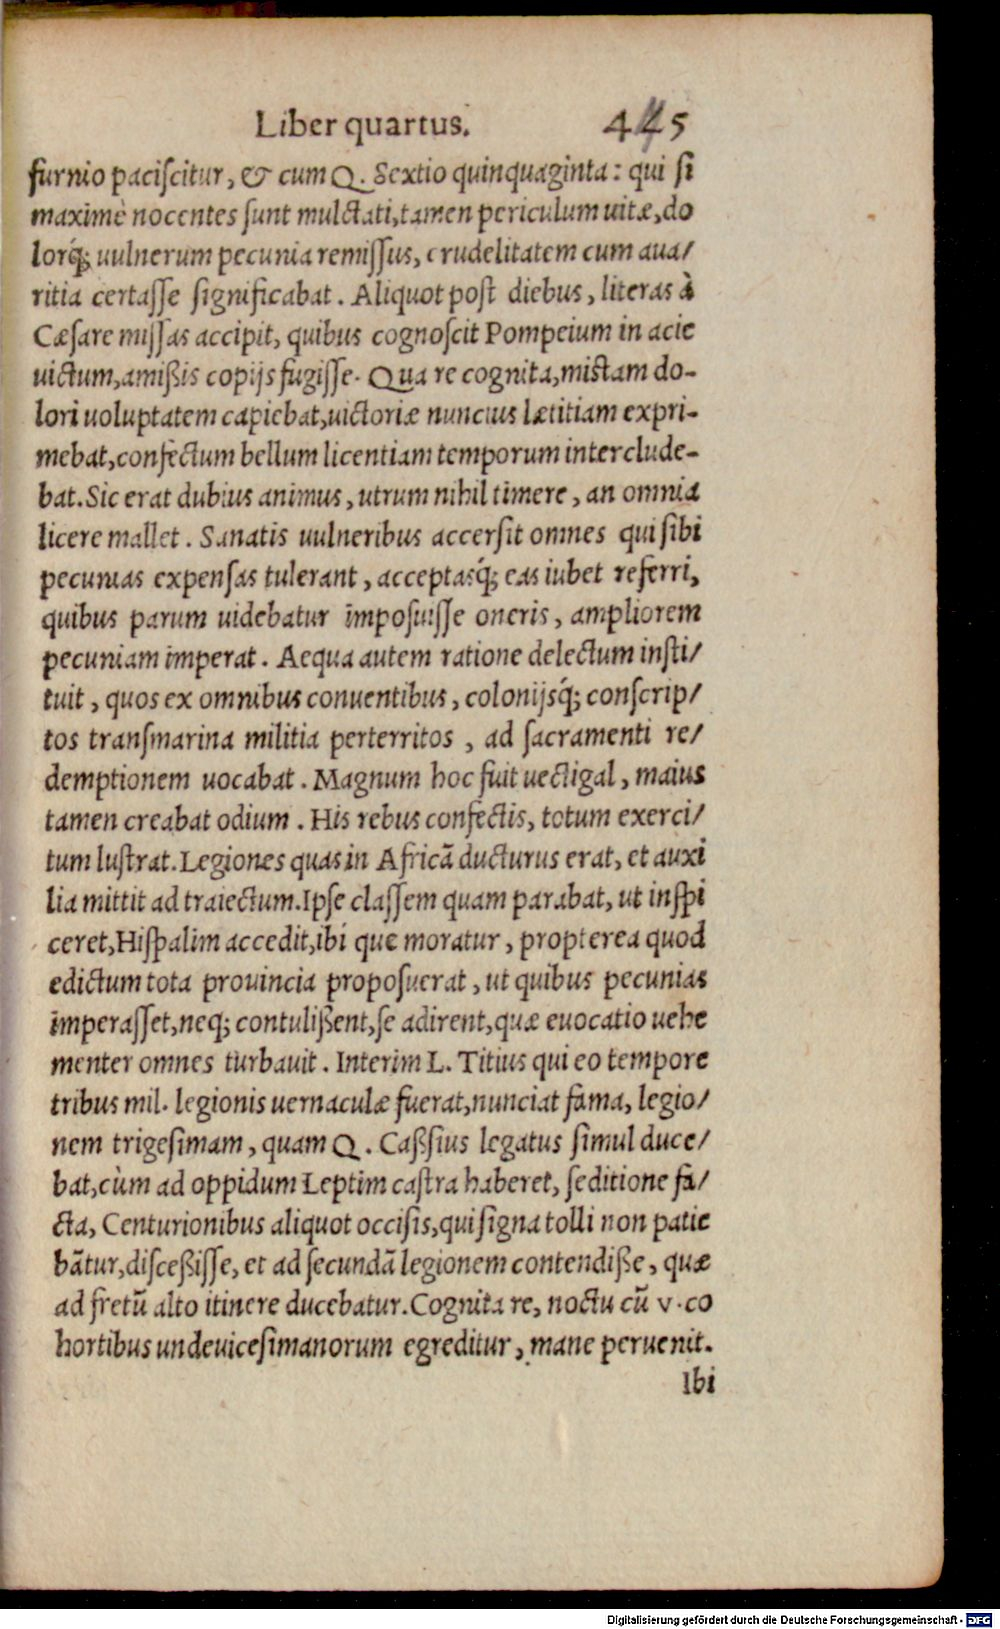 Liber quartus. 445
furnio paciscitur, & cum Q. Sextio quinquaginta: qui si
maximè nocentes sunt mulctati, tamen periculum uitæ, do
lorq́; uulnerum pecunia remissus, crudelitatem cum aua/
ritia certasse significabat. Aliquot post diebus, literas à
Cæsare missas accipit, quibus cognoscit Pompeium in acie
victum, amißis copijs fugisse. Qua re cognita, mistam do-
lori uoluptatem capiebat, uictoriæ nuncius lætitiam expri-
mebat, confectum bellum licentiam temporum interclude-
bat. Sic erat dubius animus, utrum nihil timere, an omnia
licere mallet. Sanatis uulneribus accersit omnes qui sibi
pecunias expensas tulerant, acceptasq́; eas iubet referri,
quibus parum uidebatur imposuisse oneris, ampliorem
pecuniam imperat. Aequa autem ratione delectum insti/
tuit, quos ex omnibus conuentibus, colonijsq́; conscrip/
tos transmarina militia perterritos, ad sacramenti re/
demptionem uocabat. Magnum hoc fuit uectigal, maius
tamen creabat odium. His rebus confectis, totum exerci/
tum lustrat. Legiones quas in Africā ducturus erat, et auxi
lia mittit ad traiectum. Ipse classem quam parabat, ut inspi
ceret, Hispalim accedit, ibi que moratur, propterea quod
edictum tota prouincia proposuerat, ut quibus pecunias
imperasset, neq; contulißent, se adirent, quæ euocatio uehe
menter omnes turbauit. Interim L. Titius qui eo tempore
tribus mil. legionis uernaculæ fuerat, nunciat fama, legio/
nem trigesimam, quam Q. Caßsius legatus simul duce/
bat, cùm ad oppidum Leptim castra haberet, seditione fa/
cta, Centurionibus aliquot occisis, qui signa tolli non patie
bātur, disceßisse, et ad secundā legionem contendiße, quæ
ad fretū alto itinere ducebatur. Cognita re, noctu cū v. co
hortibus undeuicesimanorum egreditur, mane peruenit.
Ibi
Digitalisierung gefördert durch die Deutsche Forschungsgemeinschaft - DFG